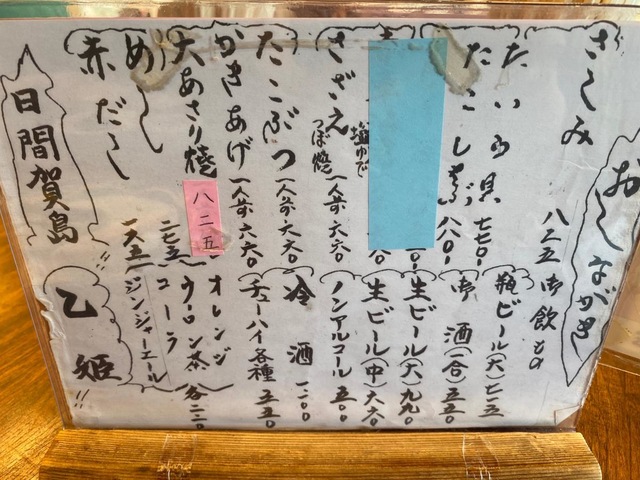 おしながき
さしみ 八二五
たいら貝 七七〇
たこしゃぶ 八八〇
さざえ
塩ゆで
つぼ焼 一人前 六六〇
たこぶつ 一人前 六六〇
かきあげ 一人前 六六〇
大あさり焼 八二五
めし 二七五
赤だし 一六五
御飲もの
瓶ビール(大) 七一五
御酒(一合) 五五〇
生ビール(大) 九九〇
生ビール(中) 六六〇
ノンアルコール 五〇〇
冷酒 一二〇〇
チューハイ各種 五五〇
オレンジ
ウーロン茶 各二二〇
コーラ
ジンジャーエール
日間賀島!!
乙姫!!